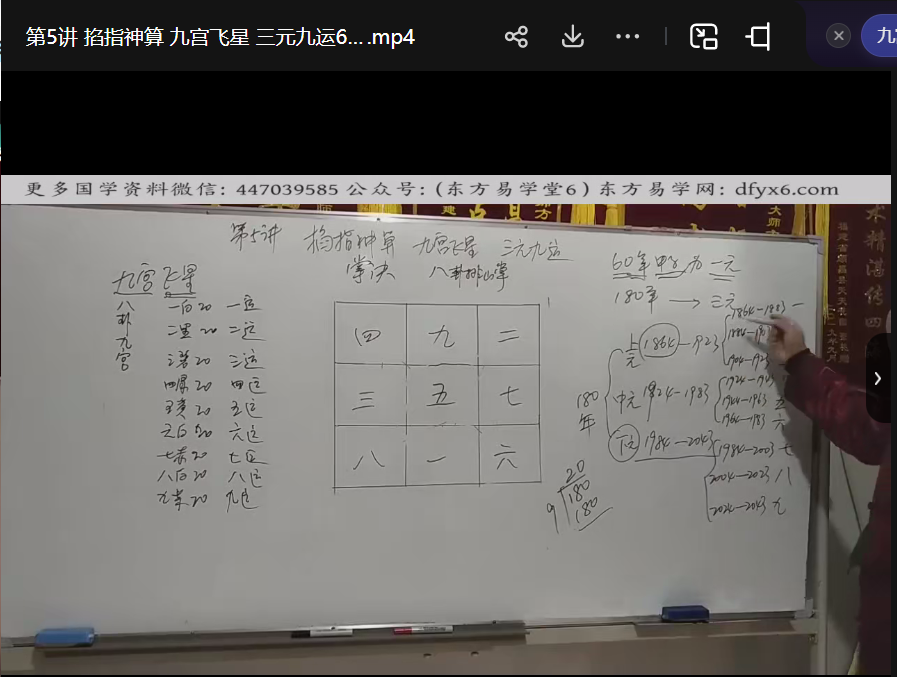 第5讲 掐指神算 九宫飞星 三元九运6... .mp4
九
更多国学资料微信: 447039585 公众号: (东方易学堂6) 东方易学网: dfyx6.com
第5讲 掐指神算 九宫飞星 三元九运
掌决 八卦排山掌
九宫飞星
八卦九宫
一白20 一运
二黑20 二运
三碧20 三运
四绿20 四运
五黄20 五运
六白20 六运
七赤20 七运
八白20 八运
九紫20 九运
四 九 二
三 五 七
八 一 六
60年甲子为一元
180年 → 三元
180年
上元 1864-1923
1864-1883 一
1904-1923
中元
1924-1943
1944-1963 五
1964-1983 六
1984-2043
1984-2003 七
2004-2023 八
2024-2043 九
20
9 180
180
大师
师方
术精湛传四